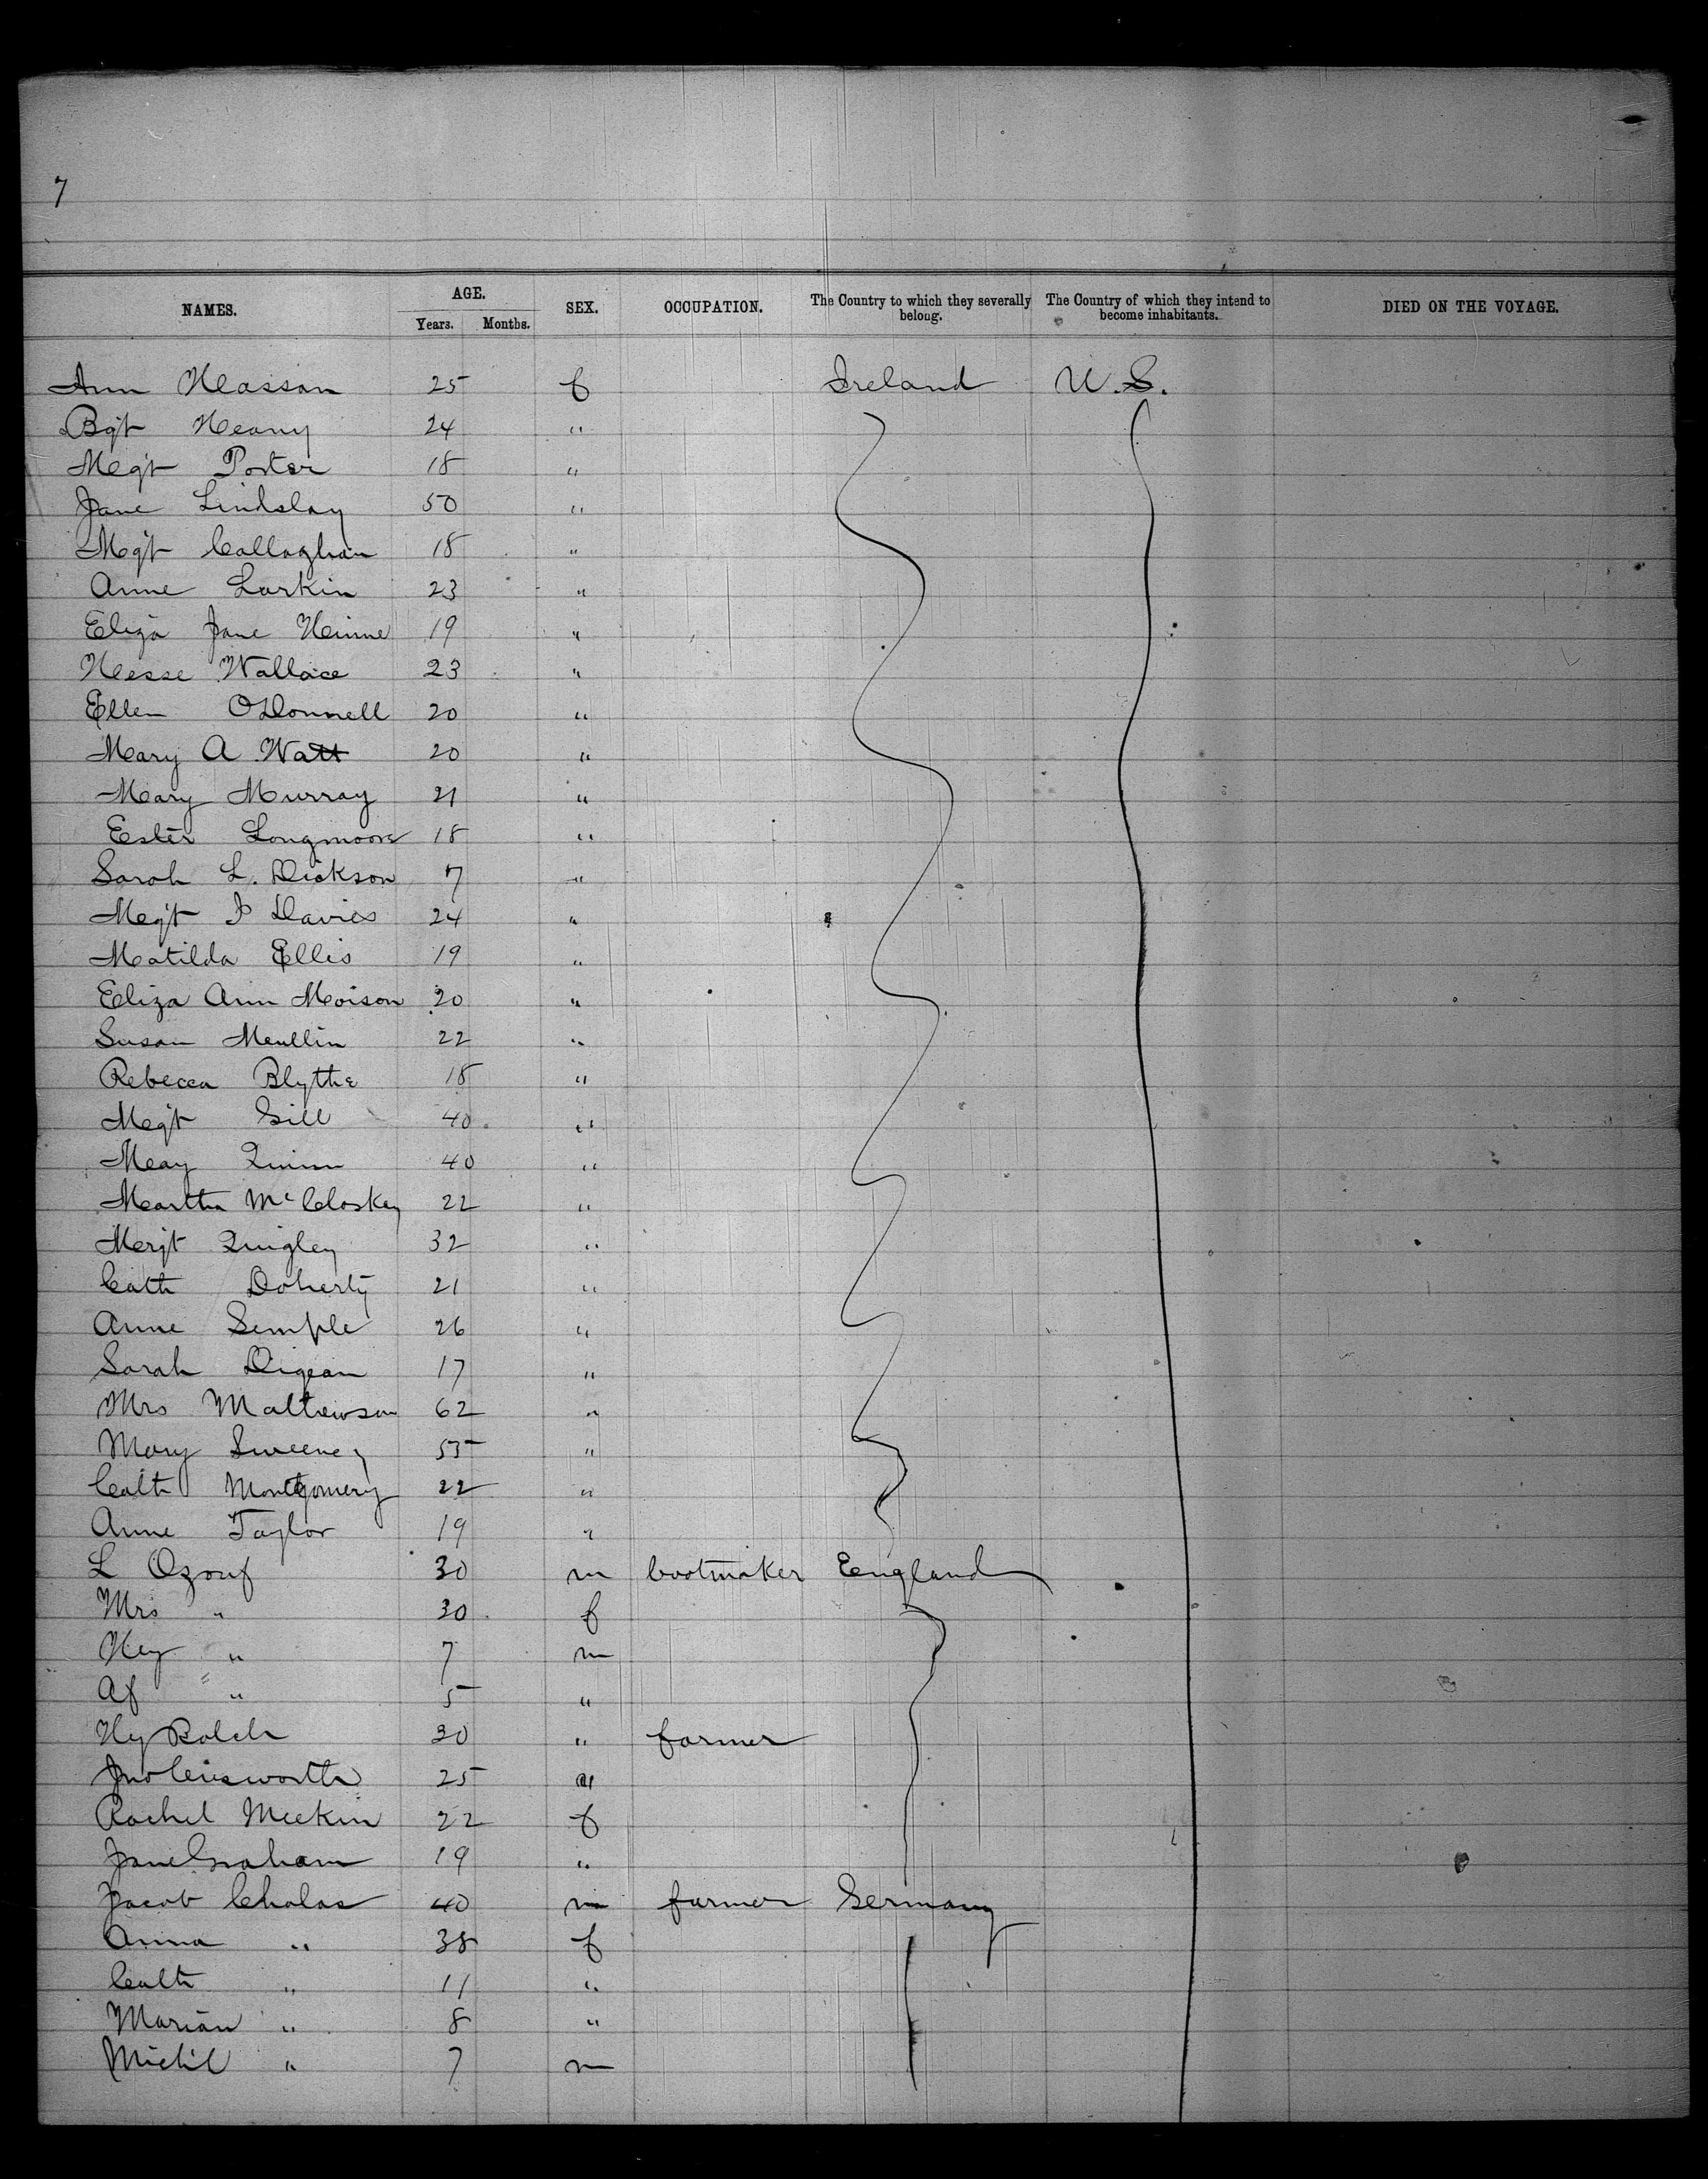 7
NAMES. AGE. Years. Months. SEX. OCCUPATION. The Country to which they severally belong. The Country of which they intend to become inhabitants. DIED ON THE VOYAGE.
Ann Hassan 25 f Ireland U.S.
Bgt Heany 24 "
Mgt Porter 18 "
Jane Lindslay 50 "
Mgt Callaghan 18 "
Anne Larkin 23 "
Eliza Jane 19 "
Wallace 23 "
Ellen ODonnell 20 "
Mary A Watt 20 "
Mary Murray 21 "
Ester Longmoore 18 "
Sarah L. Dickson 7 "
Mgt J Davies 24 "
Matilda Ellis 19 "
Eliza Ann Moison 20 "
Susan Mullin 22 "
Rebecca Blythe 18 "
Mgt Gill 40 "
May Quinn 40 "
Martha McCloskey 22 "
Mgt Quigley 32 "
Cath Doherty 21 "
Anne Semple 26 "
Sarah Digean 17 "
Mrs Mathewson 62 "
Mary Sweeney 55 "
Cath Montgomery 22 "
Anne Taylor 19 "
L Ozouf 30 m bootmaker England
Mrs " 30 f
Hy " 7 m
Af " 5 "
Hy Balch 30 " farmer
Jno 25 "
Rachel Meekin 22 f
Jane Graham 19 "
Jacob Cholas 40 m farmer Germany
Anna " 38 f
Cath " 11 "
Marian " 8 "
Michl " 7 m